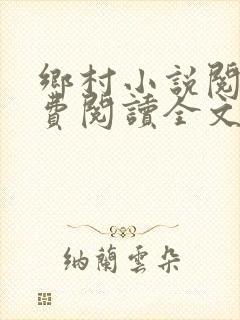 鄉村小説閱
費閱讀全文
納蘭雲朵